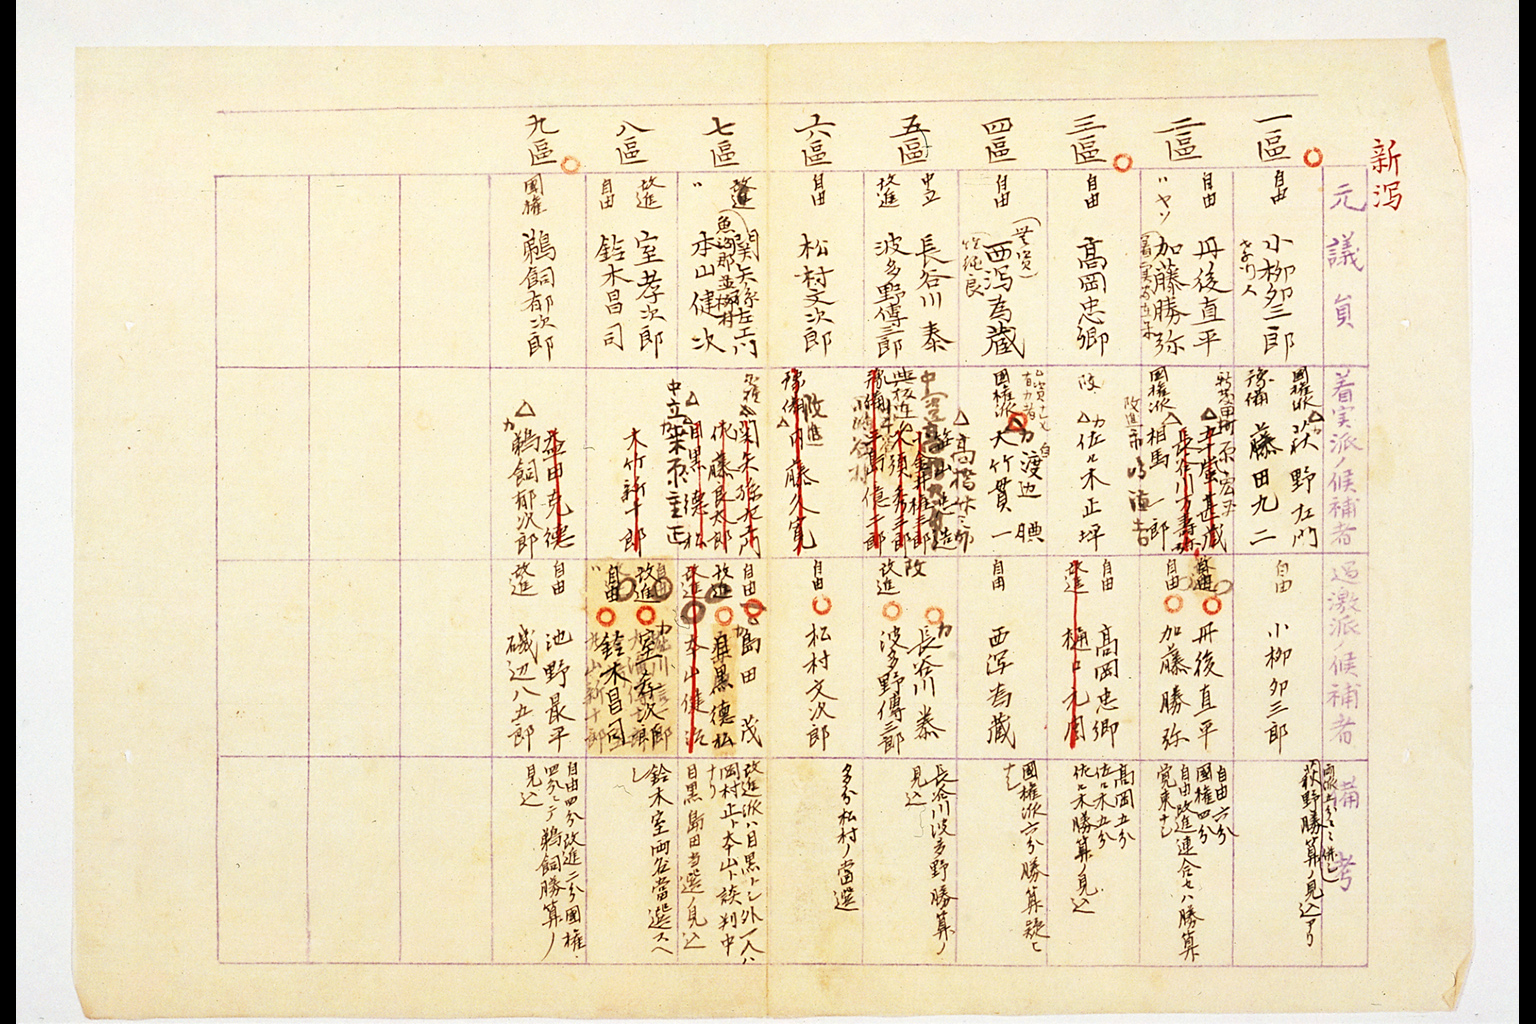 新潟
元議員
着実派ノ候補者
過激派ノ候補者
備考
一區
自由
小柳卯三郎
國権派
萩野左門
豫備
藤田九二
自由
小柳卯三郎
萩野勝算ノ見込アリ
二區
自由
丹後直平
ハヤソ
加藤勝弥
長谷川万寿弥
國権派
相馬一郎
改進
自由
丹後直平
自由
加藤勝弥
自由六分
國権四分
自由改進連合セハ勝算
覚束ナシ
三區
自由
高岡忠郷
改
カ
佐々木正坪
自由
高岡忠郷
改進
樋口元周
高岡五分
佐々木五分
佐々木勝算ノ見込
四區
自由
西潟為蔵
性純良
カ
渡辺腆
國権派
大竹貫一
自由
西潟為蔵
國権派六分勝算疑ヒ
ナシ
五區
中立
長谷川泰
改進
波多野傳三郎
高橋
大須秀三郎
豫備
改
カ
長谷川泰
改進
波多野傳三郎
長谷川波多野勝算ノ
見込
六區
自由
松村文次郎
改進
豫備
内藤久寛
自由
松村文次郎
多分松村ノ當選
七區
改進
関矢孫左エ門
〃
本山健次
関矢孫左エ門
佐藤良太郎
目黒徳松
中立
自由
島田茂
改進
目黒徳松
改進
本山健次
改進派ハ目黒トシ外一人ハ
岡村止ト本山ト談判中
ナリ
目黒島田当選ノ見込
八區
改進
室孝次郎
自由
鈴木昌司
大竹新十郎
改進
室孝次郎
自由
鈴木昌司
鈴木室両名當選スヘ
シ
九區
國権
鵜飼郁次郎
益田克徳
カ
鵜飼郁次郎
自由
池野最平
改進
磯辺八五郎
自由四分改進二分國権
四分ニテ鵜飼勝算ノ
見込